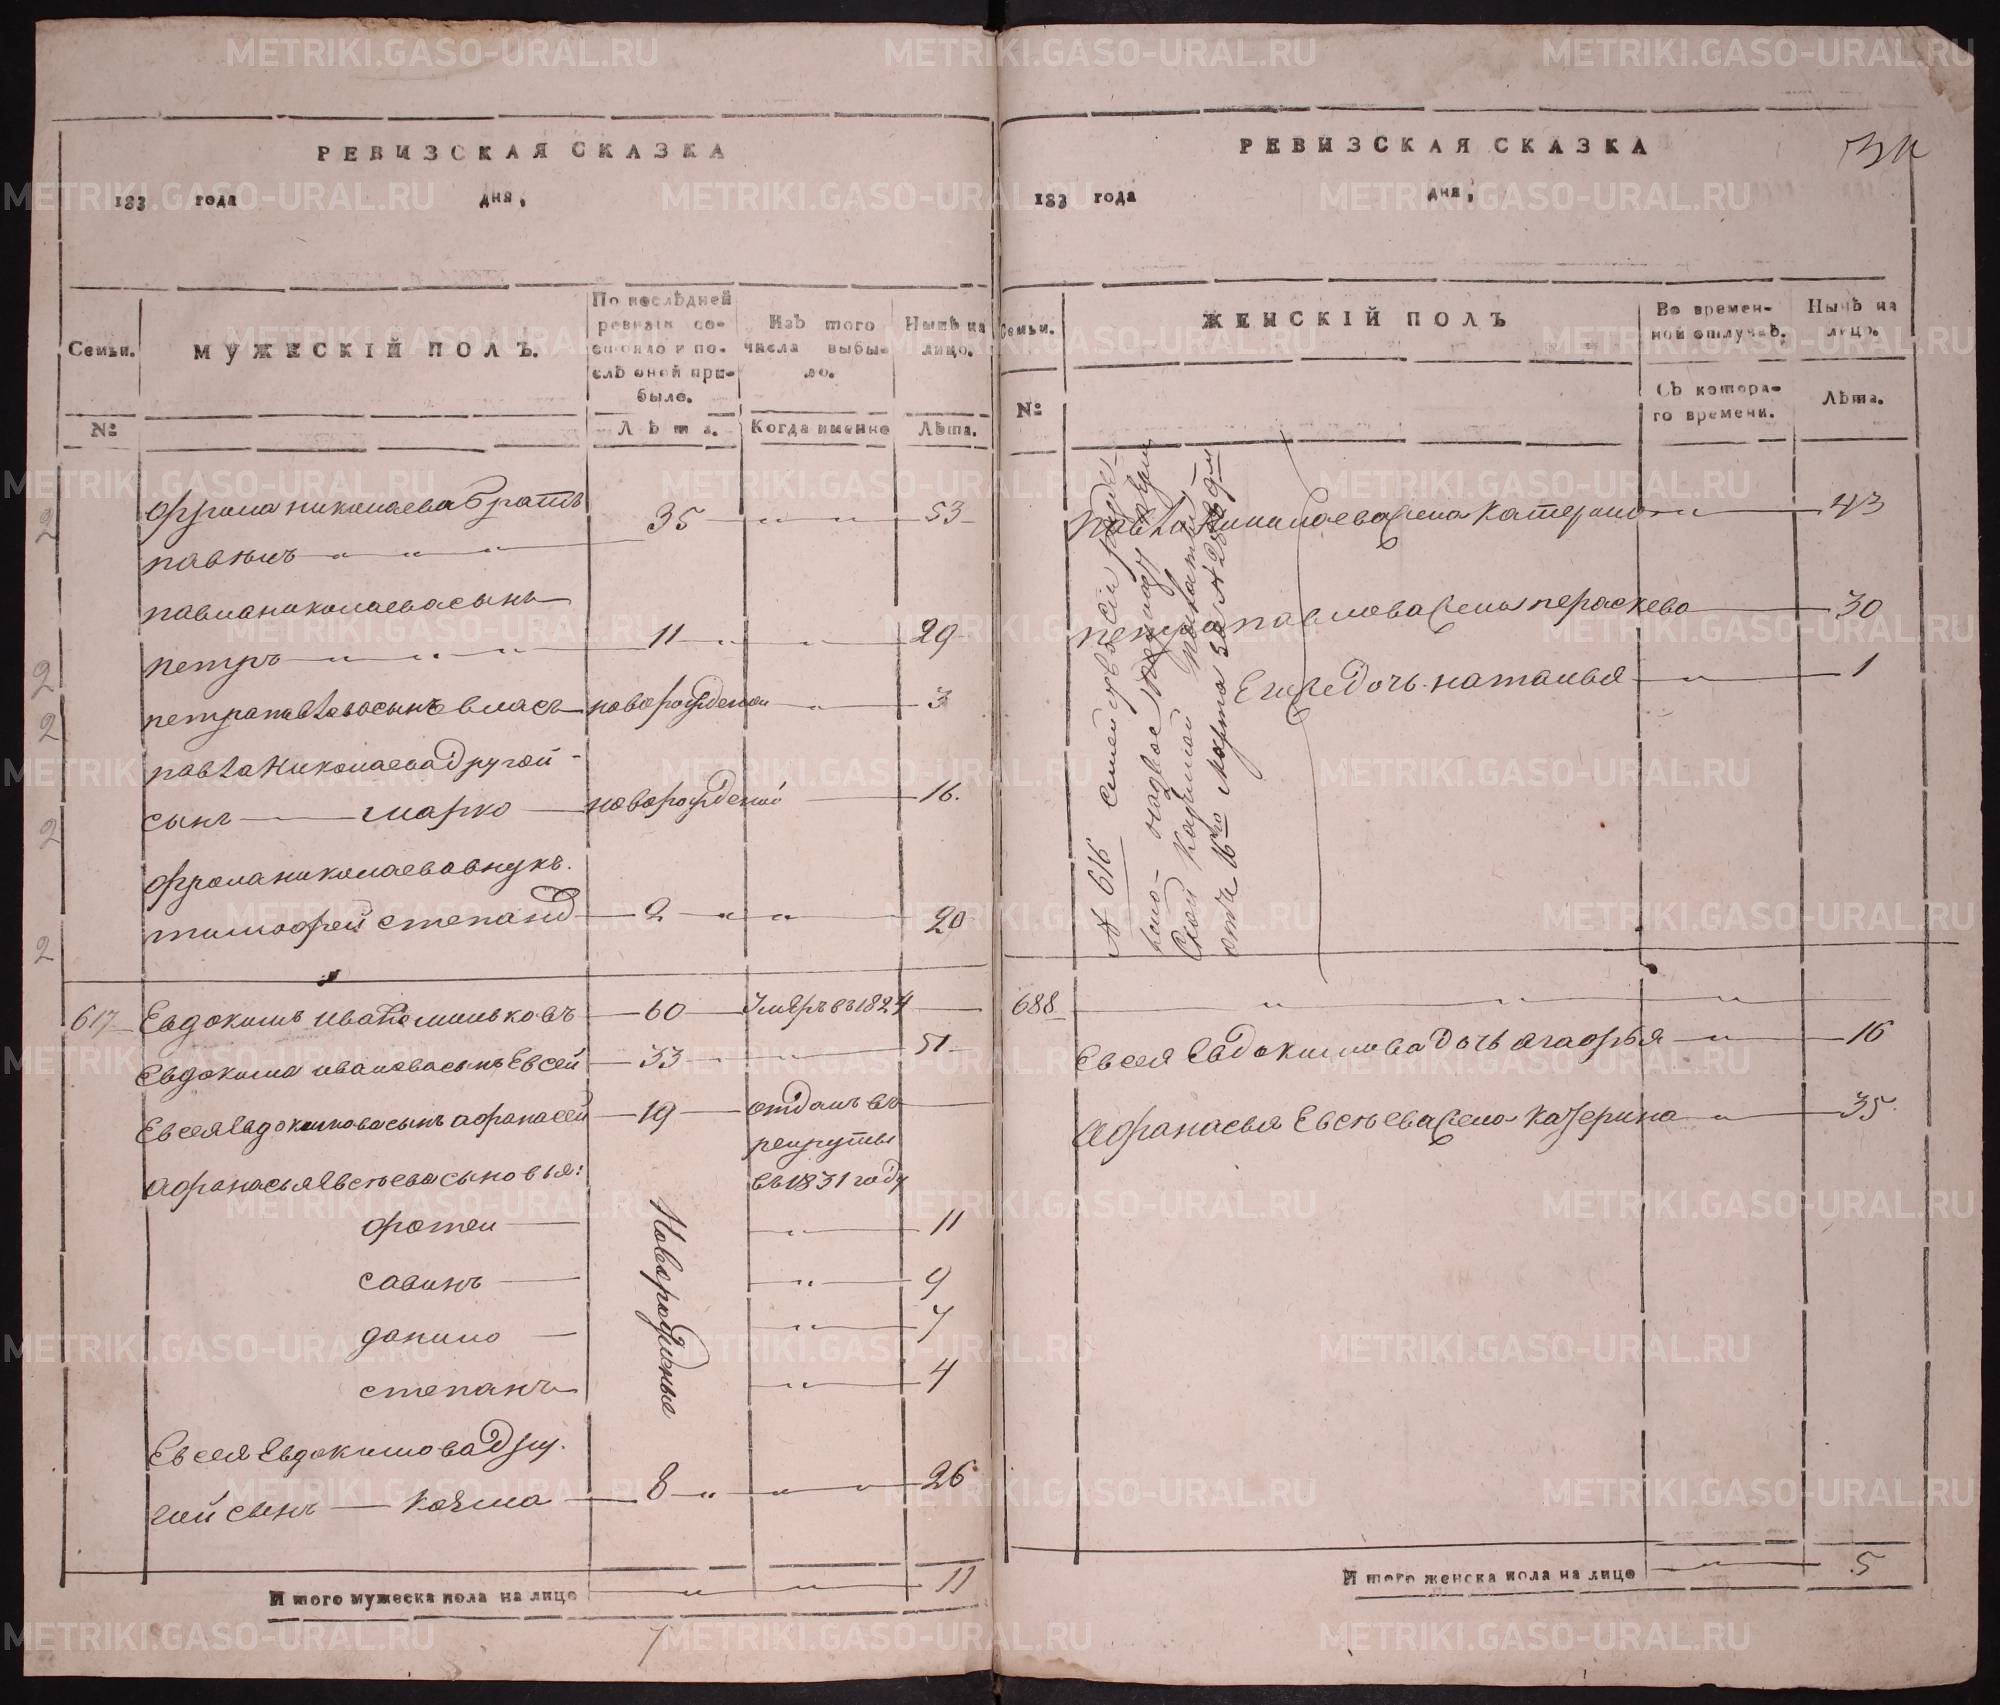 РЕВИЗСКАЯ СКАЗКА
183 года дня,
Семьи.
МУЖЕСКІЙ ПОЛЪ.
По послѣдней ревизіи состояло и послѣ оной прибыло.
Изъ того числа выбыло.
Нынѣ на лицо.
№
Лѣта.
Когда именно
Лѣта.
Фрола николаева братъ
павелъ 35 53
павла николаева сынъ
петръ 11 29
петра павлова сынъ власъ новорожденой 3
павла Николаева другой
сынъ марко новорожденой 16.
фрола николаева внукъ.
тимофей степанъ 2 20
617 Евдокимъ ивановъ 60 Умеръ въ 1824
Евдокима иванова сынъ Евсей 33 51
Евсея Евдокимова сынъ афанасей 19 отданъ въ
рекруты
въ 1831 году
афанасья Евсеева сыновья:
фотей 11
савинъ 9
данило 7
степанъ 4
Новорожденые
Евсея Евдокимова дру-
гой сынъ козма 8 26
Итого мужеска пола на лицо 11
РЕВИЗСКАЯ СКАЗКА
183 года дня,
Семьи.
ЖЕНСКІЙ ПОЛЪ
Во временной отлучкѣ.
Нынѣ на лицо.
Съ котораго времени.
№
Лѣта.
Павла Николаева жена катерина 43
петра павлова жена пераскева 30
Его же дочь наталья 1
№ 616
отъ 16го Марта за №
688
Евсея Евдокимова дочь агафья 16
афанасья Евсеева жена катерина 35.
Итого женска пола на лицо 5
METRIKI.GASO-URAL.RU